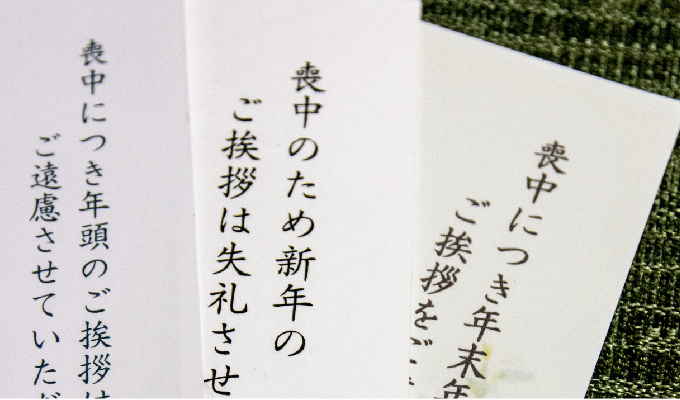 喪中につき年末年
ご挨拶をご
喪中のため新年の
ご挨拶は失礼させ
喪中につき年頭のご挨拶は
ご遠慮させていただ